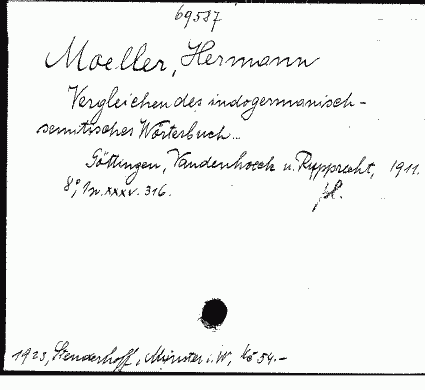 69587
Moeller, Hermann
Vergleichendes indogermanisch-
semitisches Wörterbuch...
Göttingen, Vandenhoeck u. Rupprecht, 1911.
8°, 1 Bl. XXXV. 316.
1923, Stenderhoff, Münster i. W, Kč 54.-